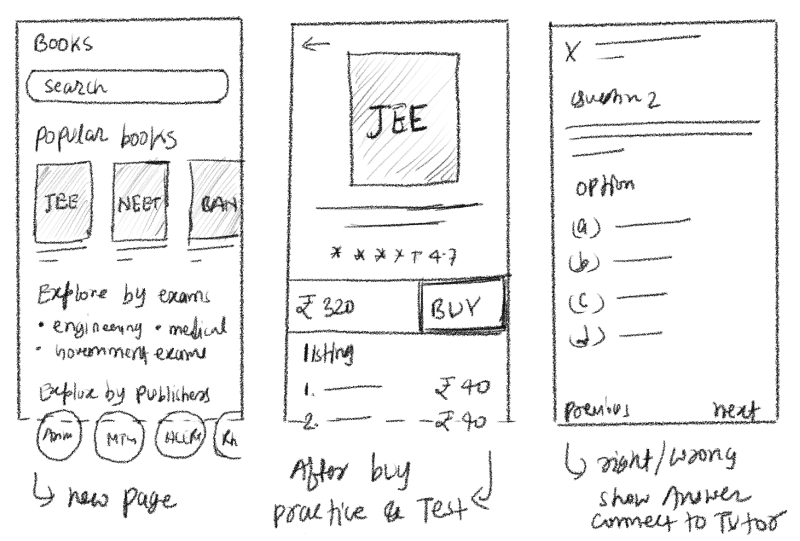 Books
search
popular books
JEE
NEET
BAN
Explore by exams
• engineering • medical
• Government exams
Explore by Publishers
MTG
new page
←
JEE
* * * * 4.7
₹ 320
BUY
listing
1. ₹ 40
2. ₹ 40
After buy
practice & Test
X
Question 2
option
(a)
(b)
(c)
(d)
previous next
right/wrong
show Answer
connect to Tutor